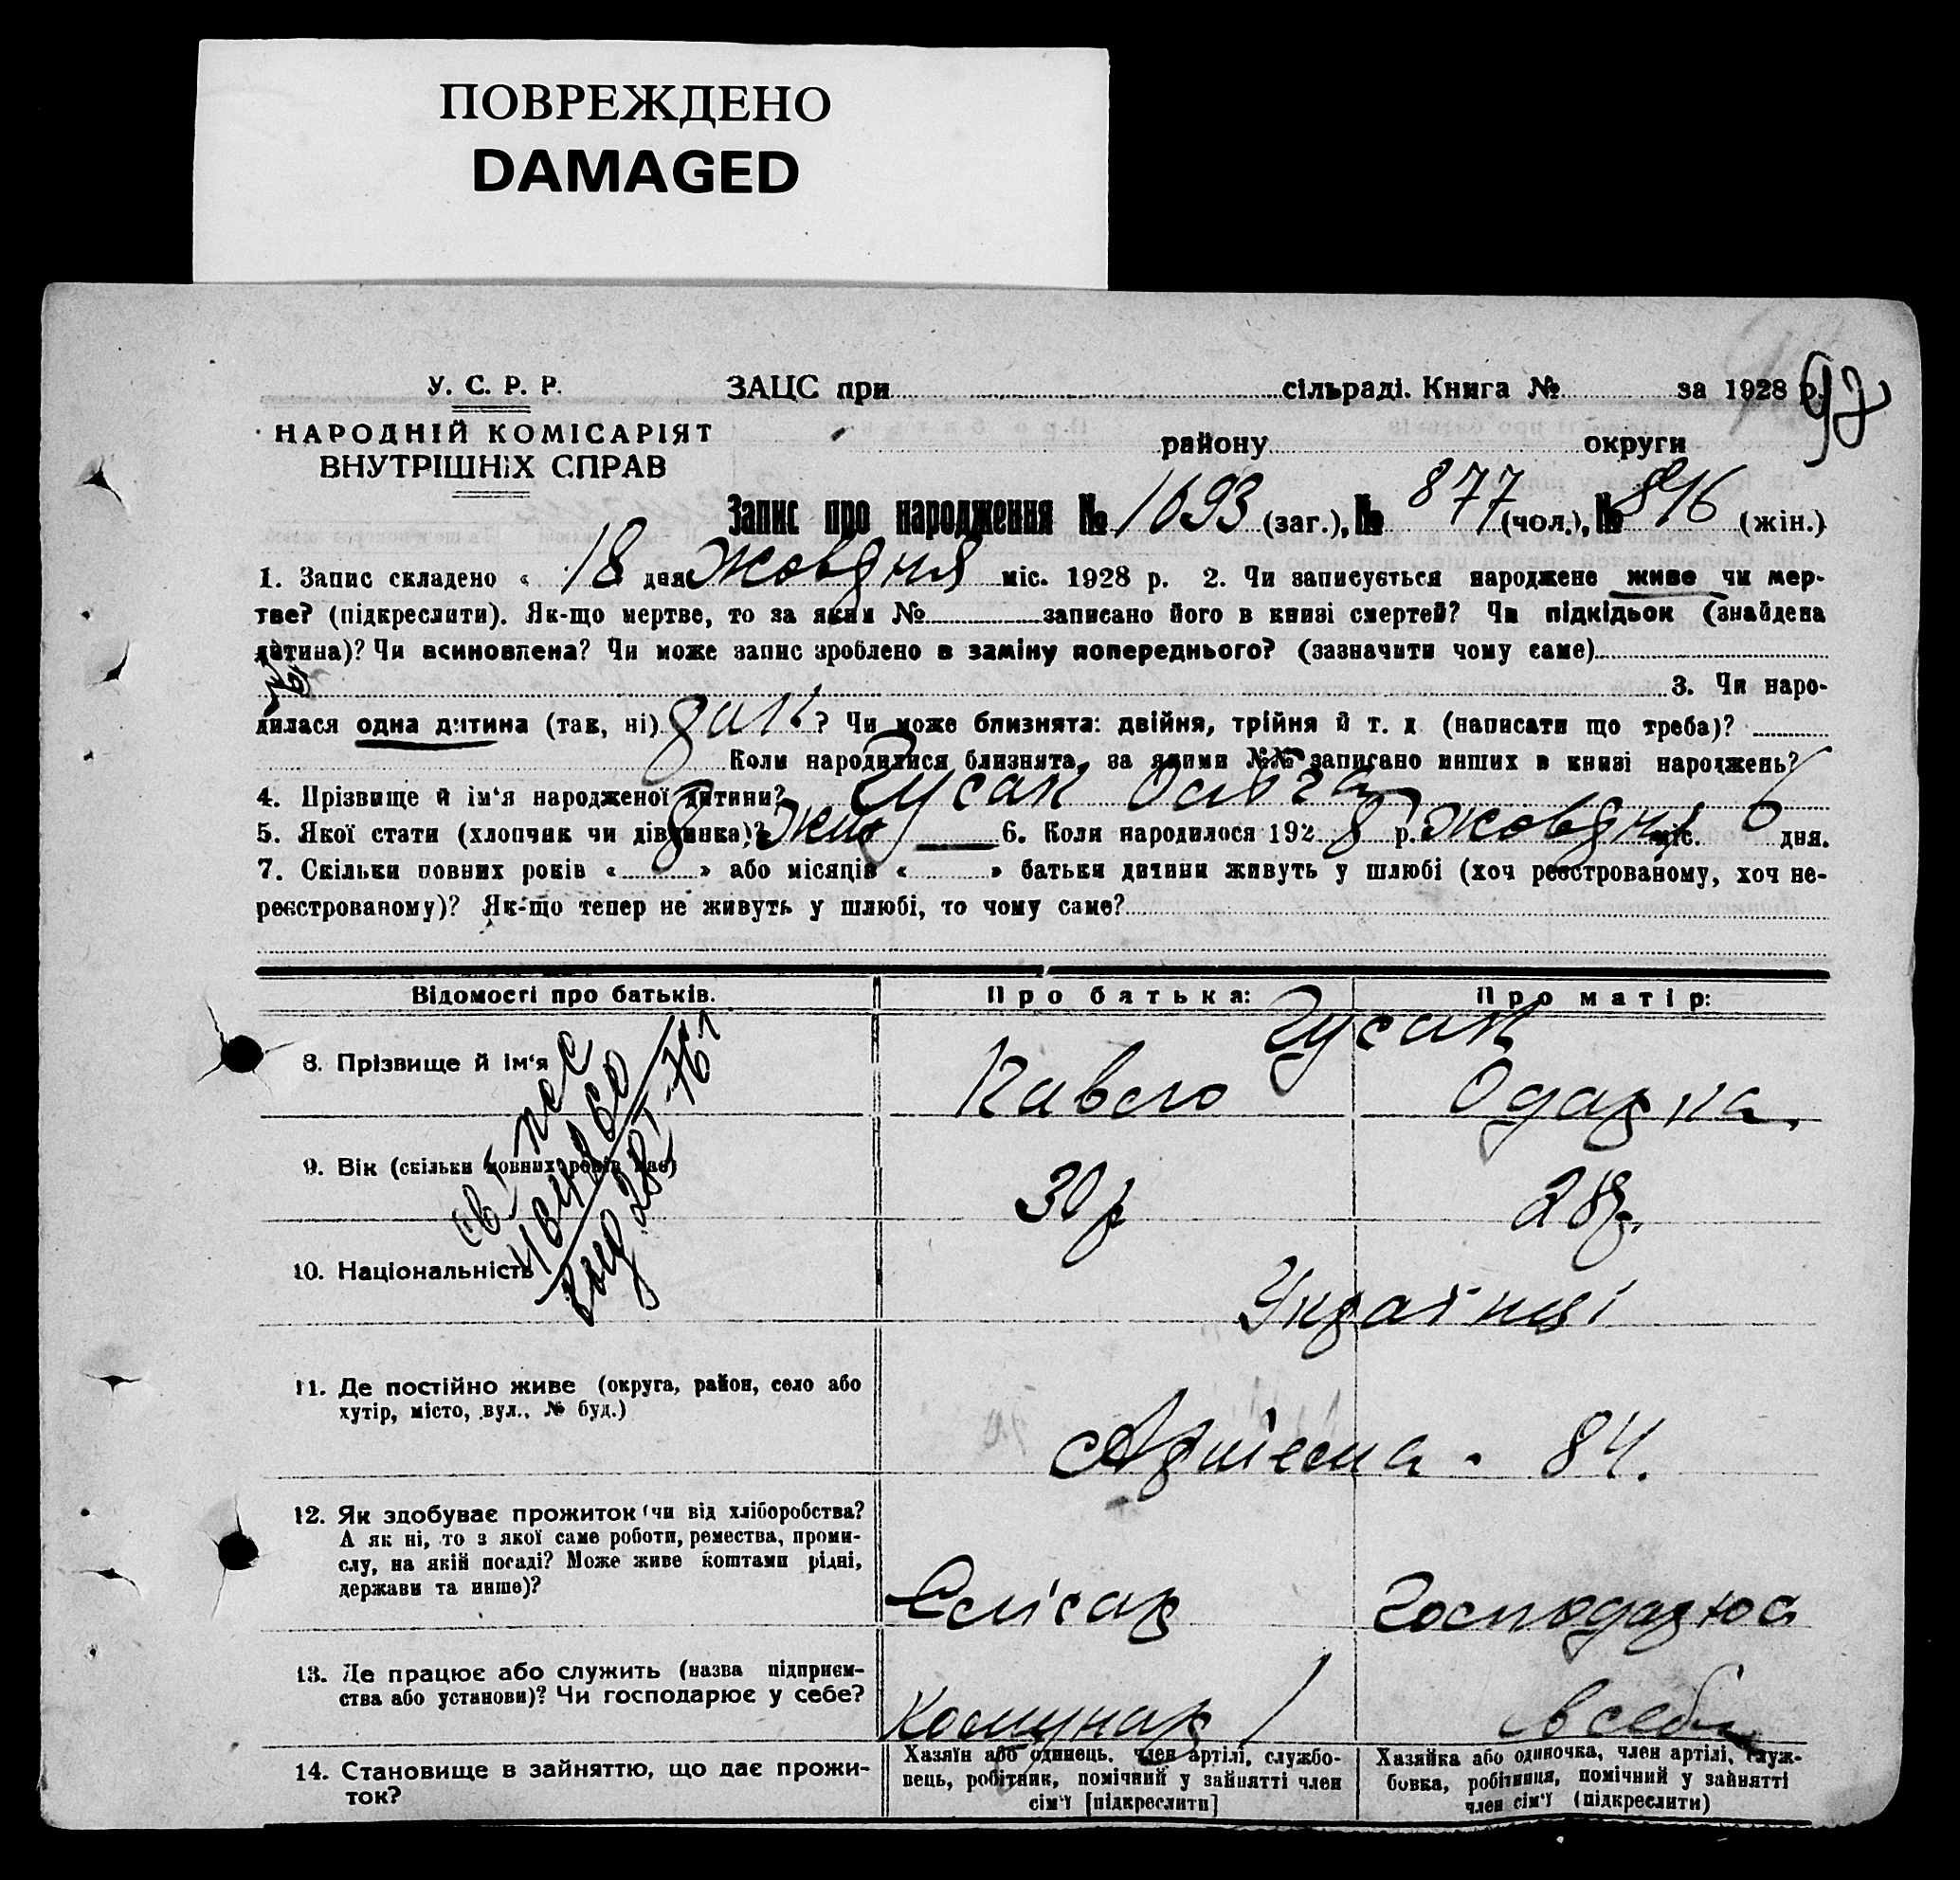 ПОВРЕЖДЕНО
DAMAGED
У. С. Р. Р.
НАРОДНІЙ КОМІСАРІЯТ
ВНУТРІШНІХ СПРАВ
ЗАЦС при сільраді. Книга № за 1928 р.
району округи
Запис про народження № 1693 (заг.), № 877 (чол.), № 816 (жін.)
1. Запис складено « 18 дня жовдня міс. 1928 р. 2. Чи записується народжене живе чи мер-
тве? (підкреслити). Як-що мертве, то за яким № записано його в книзі смертей? Чи підкідьок (знайдена
дитина)? Чи всиновлена? Чи може запис зроблено в заміну попереднього? (зазначити чому саме)
3. Чи наро-
дилася одна дитина (так, ні) ? Чи може близнята: двійня, трійня й т. д (написати що треба)?
Коли народилися близнята, за якими №№ записано инших в книзі народжень?
4. Прізвище й ім'я народженої дитини? Гусак Ольга
5. Якої стати (хлопчик чи дівчинка)? жін 6. Коли народилося 192 8 р. жовдня міс. 6 дня.
7. Скільки повних років « » або місяців « » батьки дитини живуть у шлюбі (хоч реєстрованому, хоч не-
реєстрованому)? Як-що тепер не живуть у шлюбі, то чому саме?
Відомості про батьків. Про батька: Про матір:
Гусак
8. Прізвище й ім'я Павло Одарка
9. Вік (скільки повних років має) 30 р 28 р.
10. Національність Українці
11. Де постійно живе (округа, район, село або
хутір, місто, вул., № буд.) Артема . 84.
12. Як здобуває прожиток (чи від хліборобства?
А як ні, то з якої саме роботи, ремества, проми-
слу, на якій посаді? Може живе коштами рідні,
держави та инше)? Слісар Господарює
13. Де працює або служить (назва підприєм-
ства або установи)? Чи господарює у себе? Комунар в себе
14. Становище в зайняттю, що дає прожи-
ток?
Хазяїн або одинець, член артілі, службо-
вець, робітник, помічний у зайнятті член
сім'ї [підкреслити]
Хазяйка або одиночка, член артілі, служ-
бовка, робітниця, помічний у зайнятті
член сім'ї (підкреслити)